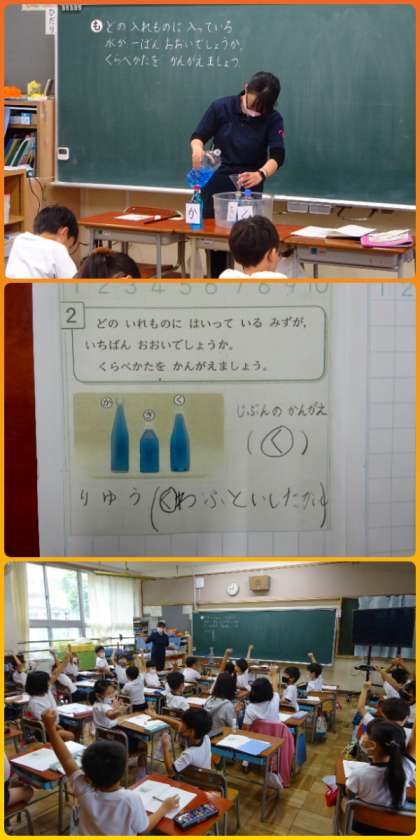 も どの 入れものに 入っている
水が 一ばん おおいでしょうか。
くらべかたを かんがえましょう。
か
く
1 2 3 4 5 6 7 8 9 10
2 どの いれものに はいって いる みずが,
いちばん おおいでしょうか。
くらべかたを かんがえましょう。
か き く
じぶんの かんがえ
(く)
りゆう